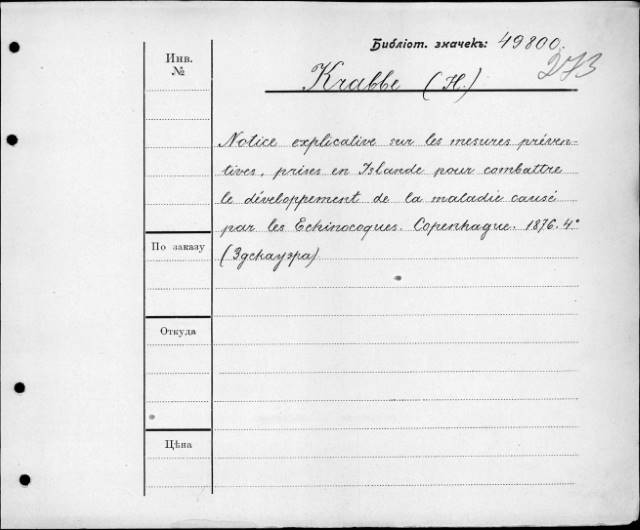 Библіот. значекъ: 49800.
273
Инв.
№
Krabbe (H.)
Notice explicative sur les mesures préven-
tives, prises en Islande pour combattre
le développement de la maladie causé
par les Echinocoques. Copenhague. 1876. 4°
(Эдскауэра)
По заказу
Откуда
Цѣна